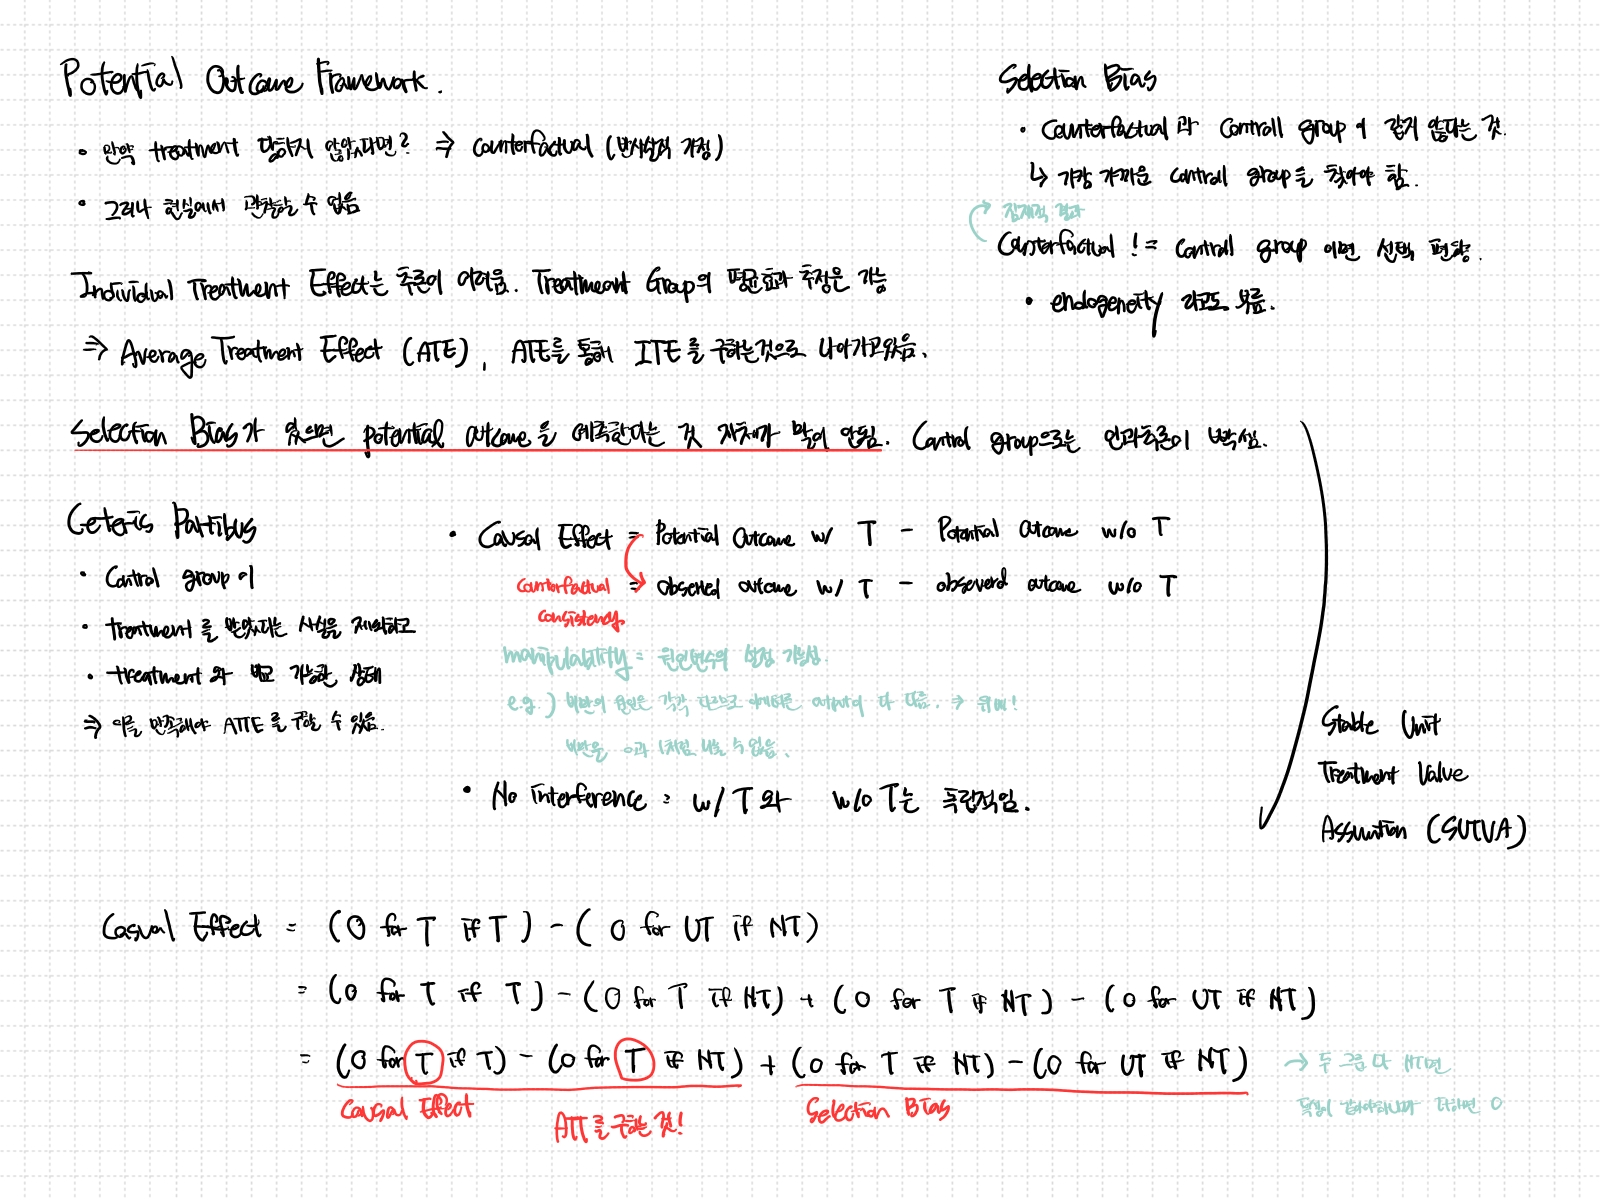 Potential Outcome Framework.
• 만약 treatment 당하지 않았다면? ⇒ Counterfactual (반사실적 가정)
• 그러나 현실에서 관찰할 수 없음
Individual Treatment Effect는 추론이 어려움. Treatment Group의 평균효과 추정은 가능
⇒ Average Treatment Effect (ATE), ATE를 통해 ITE를 구하는것으로 나아가고있음.
Selection Bias
• Counterfactual과 Controll group이 같지 않다는 것.
↳ 가장 가까운 Controll group을 찾아야 함.
잠재적 결과
Counterfactual != Control group 이면 선택 편향.
• endogeneity 라고도 부름.
Selection Bias가 있으면 potential outcome을 예측한다는 것 자체가 말이 안됨. Control group으로는 인과추론이 빡셈.
Ceteris Partibus
• Control group이
• treatment를 받았다는 사실을 제외하고
• treatment와 비교 가능한 상태
⇒ 이를 만족해야 ATTE를 구할 수 있음.
• Causal Effect = Potential Outcome w/ T - Potential outcome w/o T
= observed outcome w/ T - observerd outcome w/o T
Counterfactual
Consistency
manipulability = 원인변수의 설정 가능성.
e.g.) 비만의 원인은 각각 다르므로 output이 다 다름. ⇒ 위배!
비만을 0과 1처럼 나눌 수 없음.
• No interference = w/ T 와 w/o T는 독립적임.
Stable Unit
Treatment Value
Assumtion (SUTVA)
Casual Effect = (O for T if T) - (O for UT if NT)
= (O for T if T) - (O for T if NT) + (O for T if NT) - (O for UT if NT)
= (O for T if T) - (O for T if NT) + (O for T if NT) - (O for UT if NT) → 두 그룹 다 NT면
Causal Effect
ATT를 구하는 것!
Selection Bias
특성이 같아야하니까 더하면 0